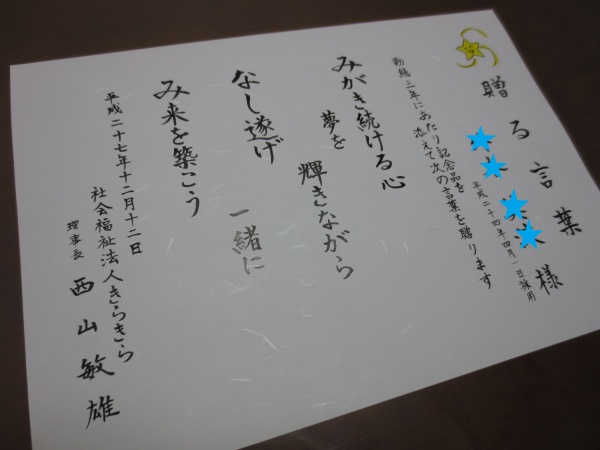 贈る言葉
様
平成二十四年四月一日採用
勤続三年にあたり記念品を
添えて次の言葉を贈ります
みがき続ける心
夢を 輝きながら
なし遂げ 一緒に
み来を築こう
平成二十七年十二月十二日
社会福祉法人きらきら
理事長 西山敏雄